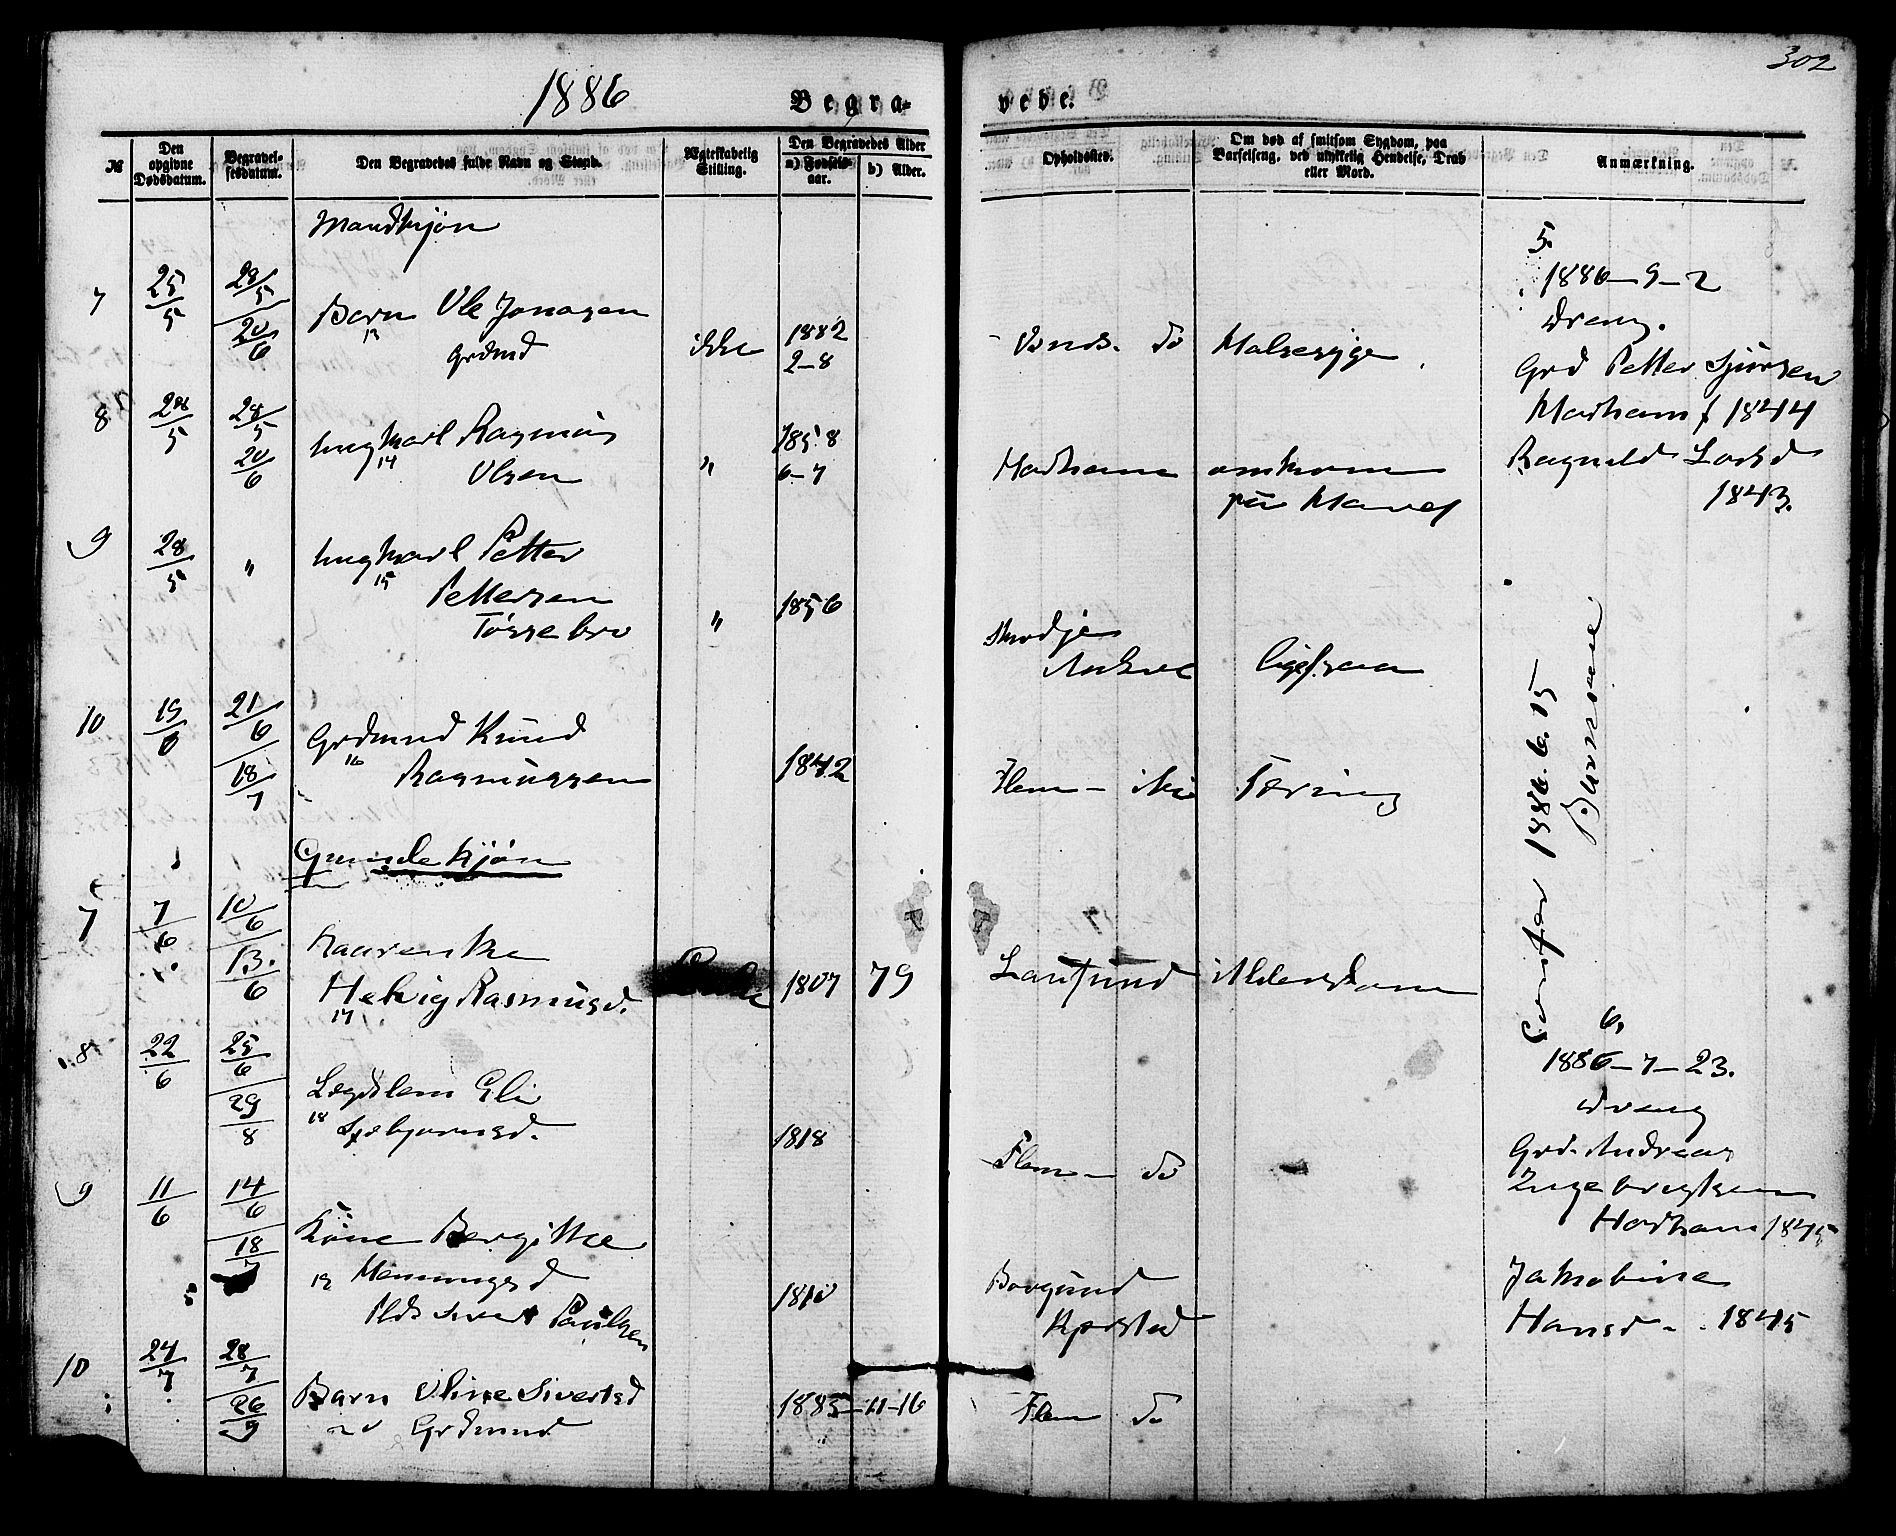 302
1886
Begra-
vede.
№
Den opgivne Dødsdatum.
Begravelsesdatum.
Den Begravedes fulde Navn og Stand.
Ægteskabelig Stilling.
Den Begravedes Alder
a) Fødselsaar.
b) Alder.
Opholdssted.
Om død af smitsom Sygdom, paa Barselseng, ved ulykkelig Hendelse, Drab eller Mord.
Anmærkning.
Mandkjøn
7 25/5 28/5 20/6 Barn Ole Jonasen
13 Grdmd ikke 1882 2-8 do Halsesyge
8 28/5 28/5 20/6 Ungkarl Rasmus
14 Olsen " 1858 6-7 Harham omkom
paa Havet
9 28/5 " Ungkarl Petter
15 Pettersen
Tøssebro " 1856 Skodje
ligesaa
10 19/6 21/6 18/7 Grdmd Knud
16 Rasmussen 1842 Flem- Tæring
Qvindekjøn
7 7/6 10/6 13/6 Kaarenke
Helvig Rasmusd.
17 1807 79 Longsund Alderdom
8 22/6 25/6 29/8 Lægdslem Eli
18 1818 Flem- do
9 11/6 14/6 18/7 Kone Bergitte
19 Hemmingsd
Sivert Paulsen 1810 Borgund
10 24/7 28/7 26/9 Barn Oline Sivertsd
Grdmd 1885-11-16 Flem do
5.
1886-9-2
dreng.
Grd Petter Sjursen
Harham f 1844
Ragnild Larsd
1843.
1886.6.15
6.
1886-7-23.
dreng
Grd. Andreas
Ingebrigtsen
Harham 1845
Jakobine
Hansd- 1845